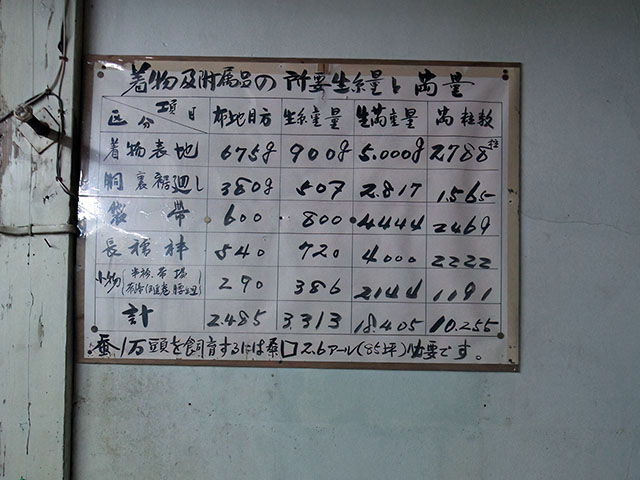 着物及附属品の所要生糸量と繭量
区分 項目 布地目方 生糸産量 生繭産量 繭粒数
着物表地 675g 900g 5.000g 2788粒
胴裏裾廻し 380g 507 2.817 1.565
袋帯 600 800 4444 2469
長襦袢 540 720 4000 2222
小物 290 386 2144 1191
計 2.485 3.313 18.405 10.255
蚕1万頭を飼育するには桑口2.6アール(85坪)必要です。